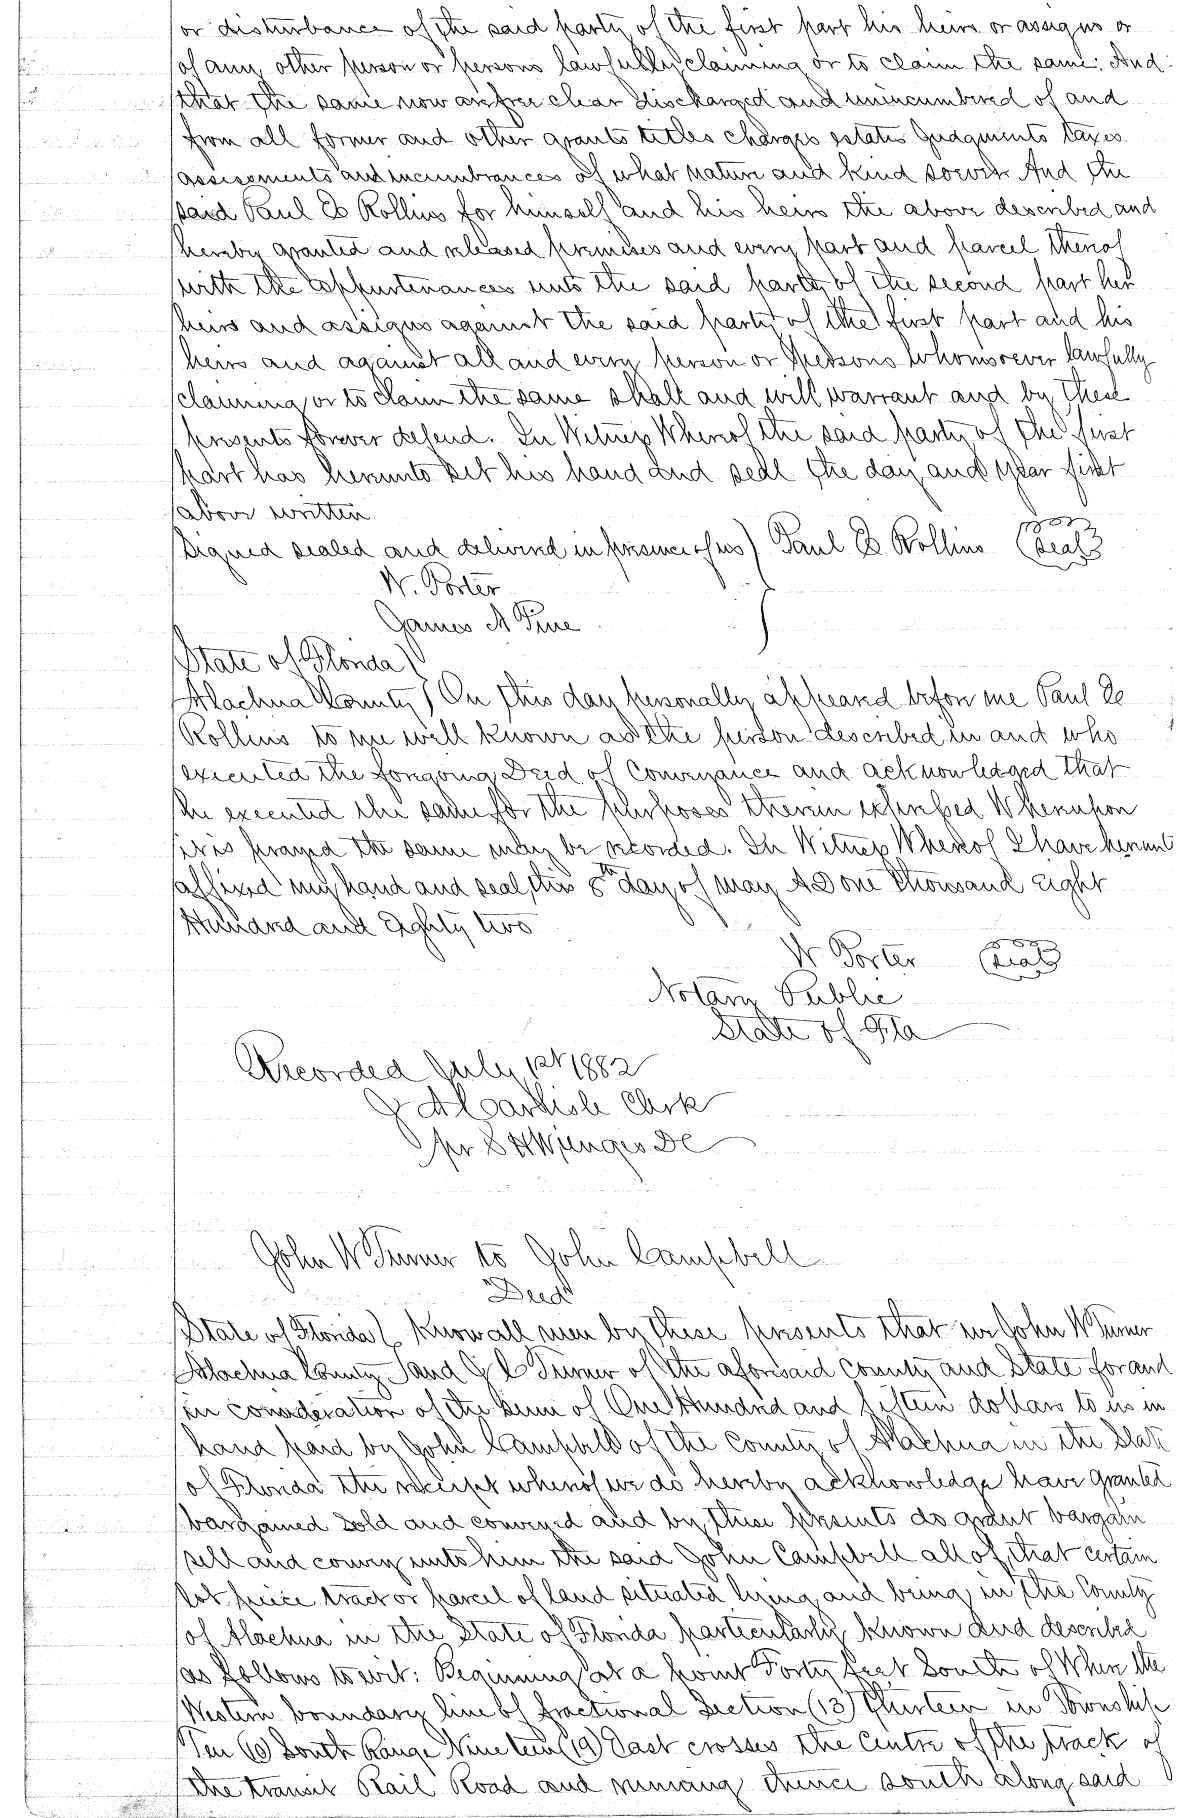 or disturbance of the said party of the first part his heirs or assigns or
of any other person or persons lawfully claiming or to claim the same: And
that the same now are free clear discharged and unincumbered of and
from all former and other grants titles charges estates Judgments taxes
assessments and incumbrances of what nature and kind soever And the
said Paul E Rollins for himself and his heirs the above described and
hereby granted and released premises and every part and parcel thereof
with the appurtenances unto the said party of the second part her
heirs and assigns against the said party of the first part and his
heirs and against all and every person or persons whomsoever lawfully
claiming or to claim the same shall and will warrant and by these
presents forever defend. In Witness Whereof the said party of the first
part has hereunto set his hand and seal the day and year first
above written
Signed sealed and delivered in presence of us) Paul E Rollins (Seal)
W. Porter
James A Pine
State of Florida)
Alachua County) On this day personally appeared before me Paul E
Rollins to me well known as the person described in and who
executed the foregoing Deed of Conveyance and acknowledged that
he executed the same for the purposes therein expressed Whereupon
it is prayed the same may be recorded. In Witness Whereof I have hereunt
affixed my hand and seal, this 8th day of may A D one thousand Eight
Hundred and Eighty two
W Porter (Seal)
Notary Public
State of Fla
Recorded July 1st 1882
J A Carlisle Clerk
pr S H Wienges DC
John W Turner to John Campbell
"Deed"
State of Florida ( Know all men by these presents that we John W Turner
Alachua County ) and J C Turner of the aforesaid County and State for and
in consideration of the sum of One Hundred and fifteen dollars to us in
hand paid by John Campbell of the County of Alachua in the State
of Florida the receipt whereof we do hereby acknowledge have granted
bargained sold and conveyed and by these presents do grant bargain
sell and convey unto him the said John Campbell all of that certain
lot piece tract or parcel of land situated lying and being in the County
of Alachua in the State of Florida particularly known and described
as follows to wit: Beginning at a point Forty feet South of Where the
Western boundary line of fractional Section (13) thirteen in Township
Ten (10) South Range Nineteen (19) East crosses the Centre of the track of
the transit Rail Road and running thence south along said